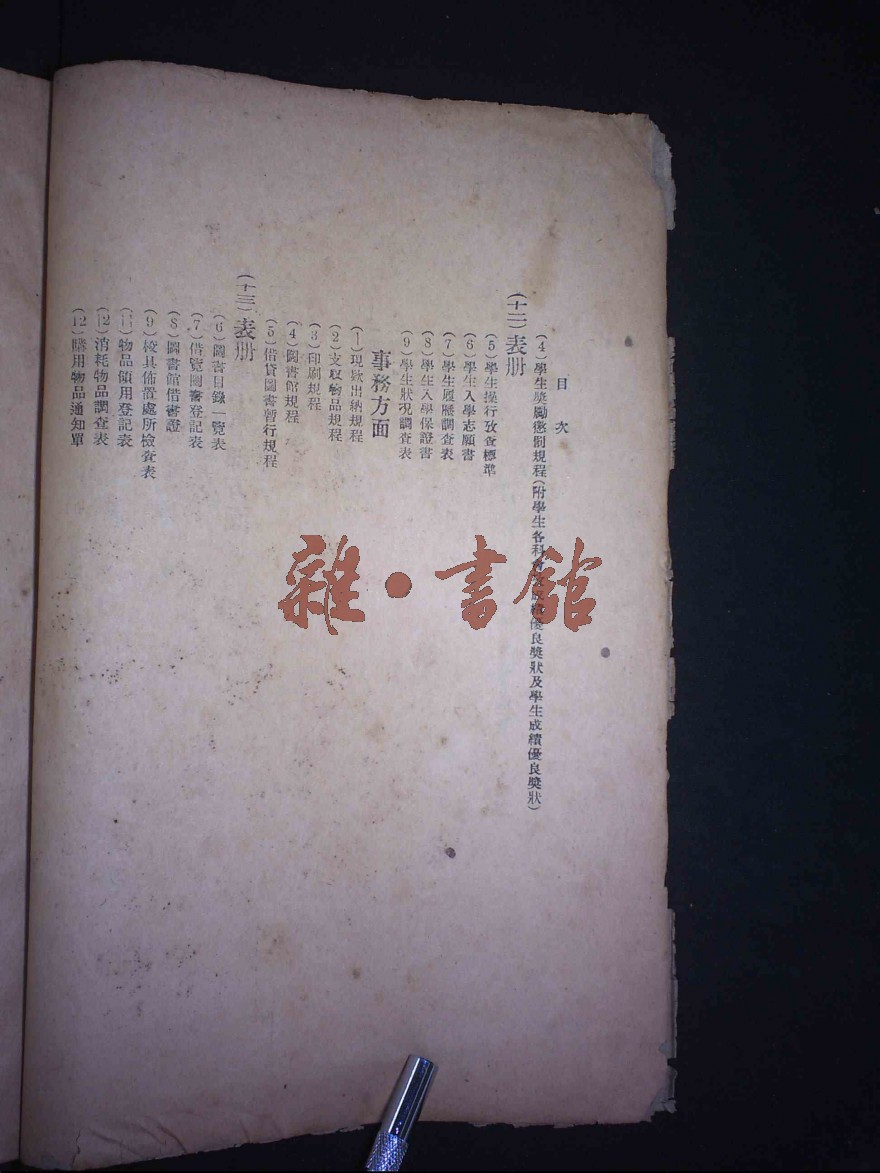 目次
(4)學生獎勵懲罰規程(附學生各科會攷成績優良獎狀及學生成績優良獎狀)
(十二)表册
(5)學生操行攷查標準
(6)學生入學志願書
(7)學生履歷調查表
(8)學生入學保證書
(9)學生狀況調查表
事務方面
(1)現欵出納規程
(2)支取物品規程
(3)印刷規程
(4)圖書館規程
(5)借貸圖書暫行規程
(十三)表册
(6)圖書目錄一覽表
(7)借覽圖書登記表
(8)圖書館借書證
(9)校具佈置處所檢查表
(11)物品領用登記表
(12)消耗物品調查表
(12)購用物品通知單
雜·書館